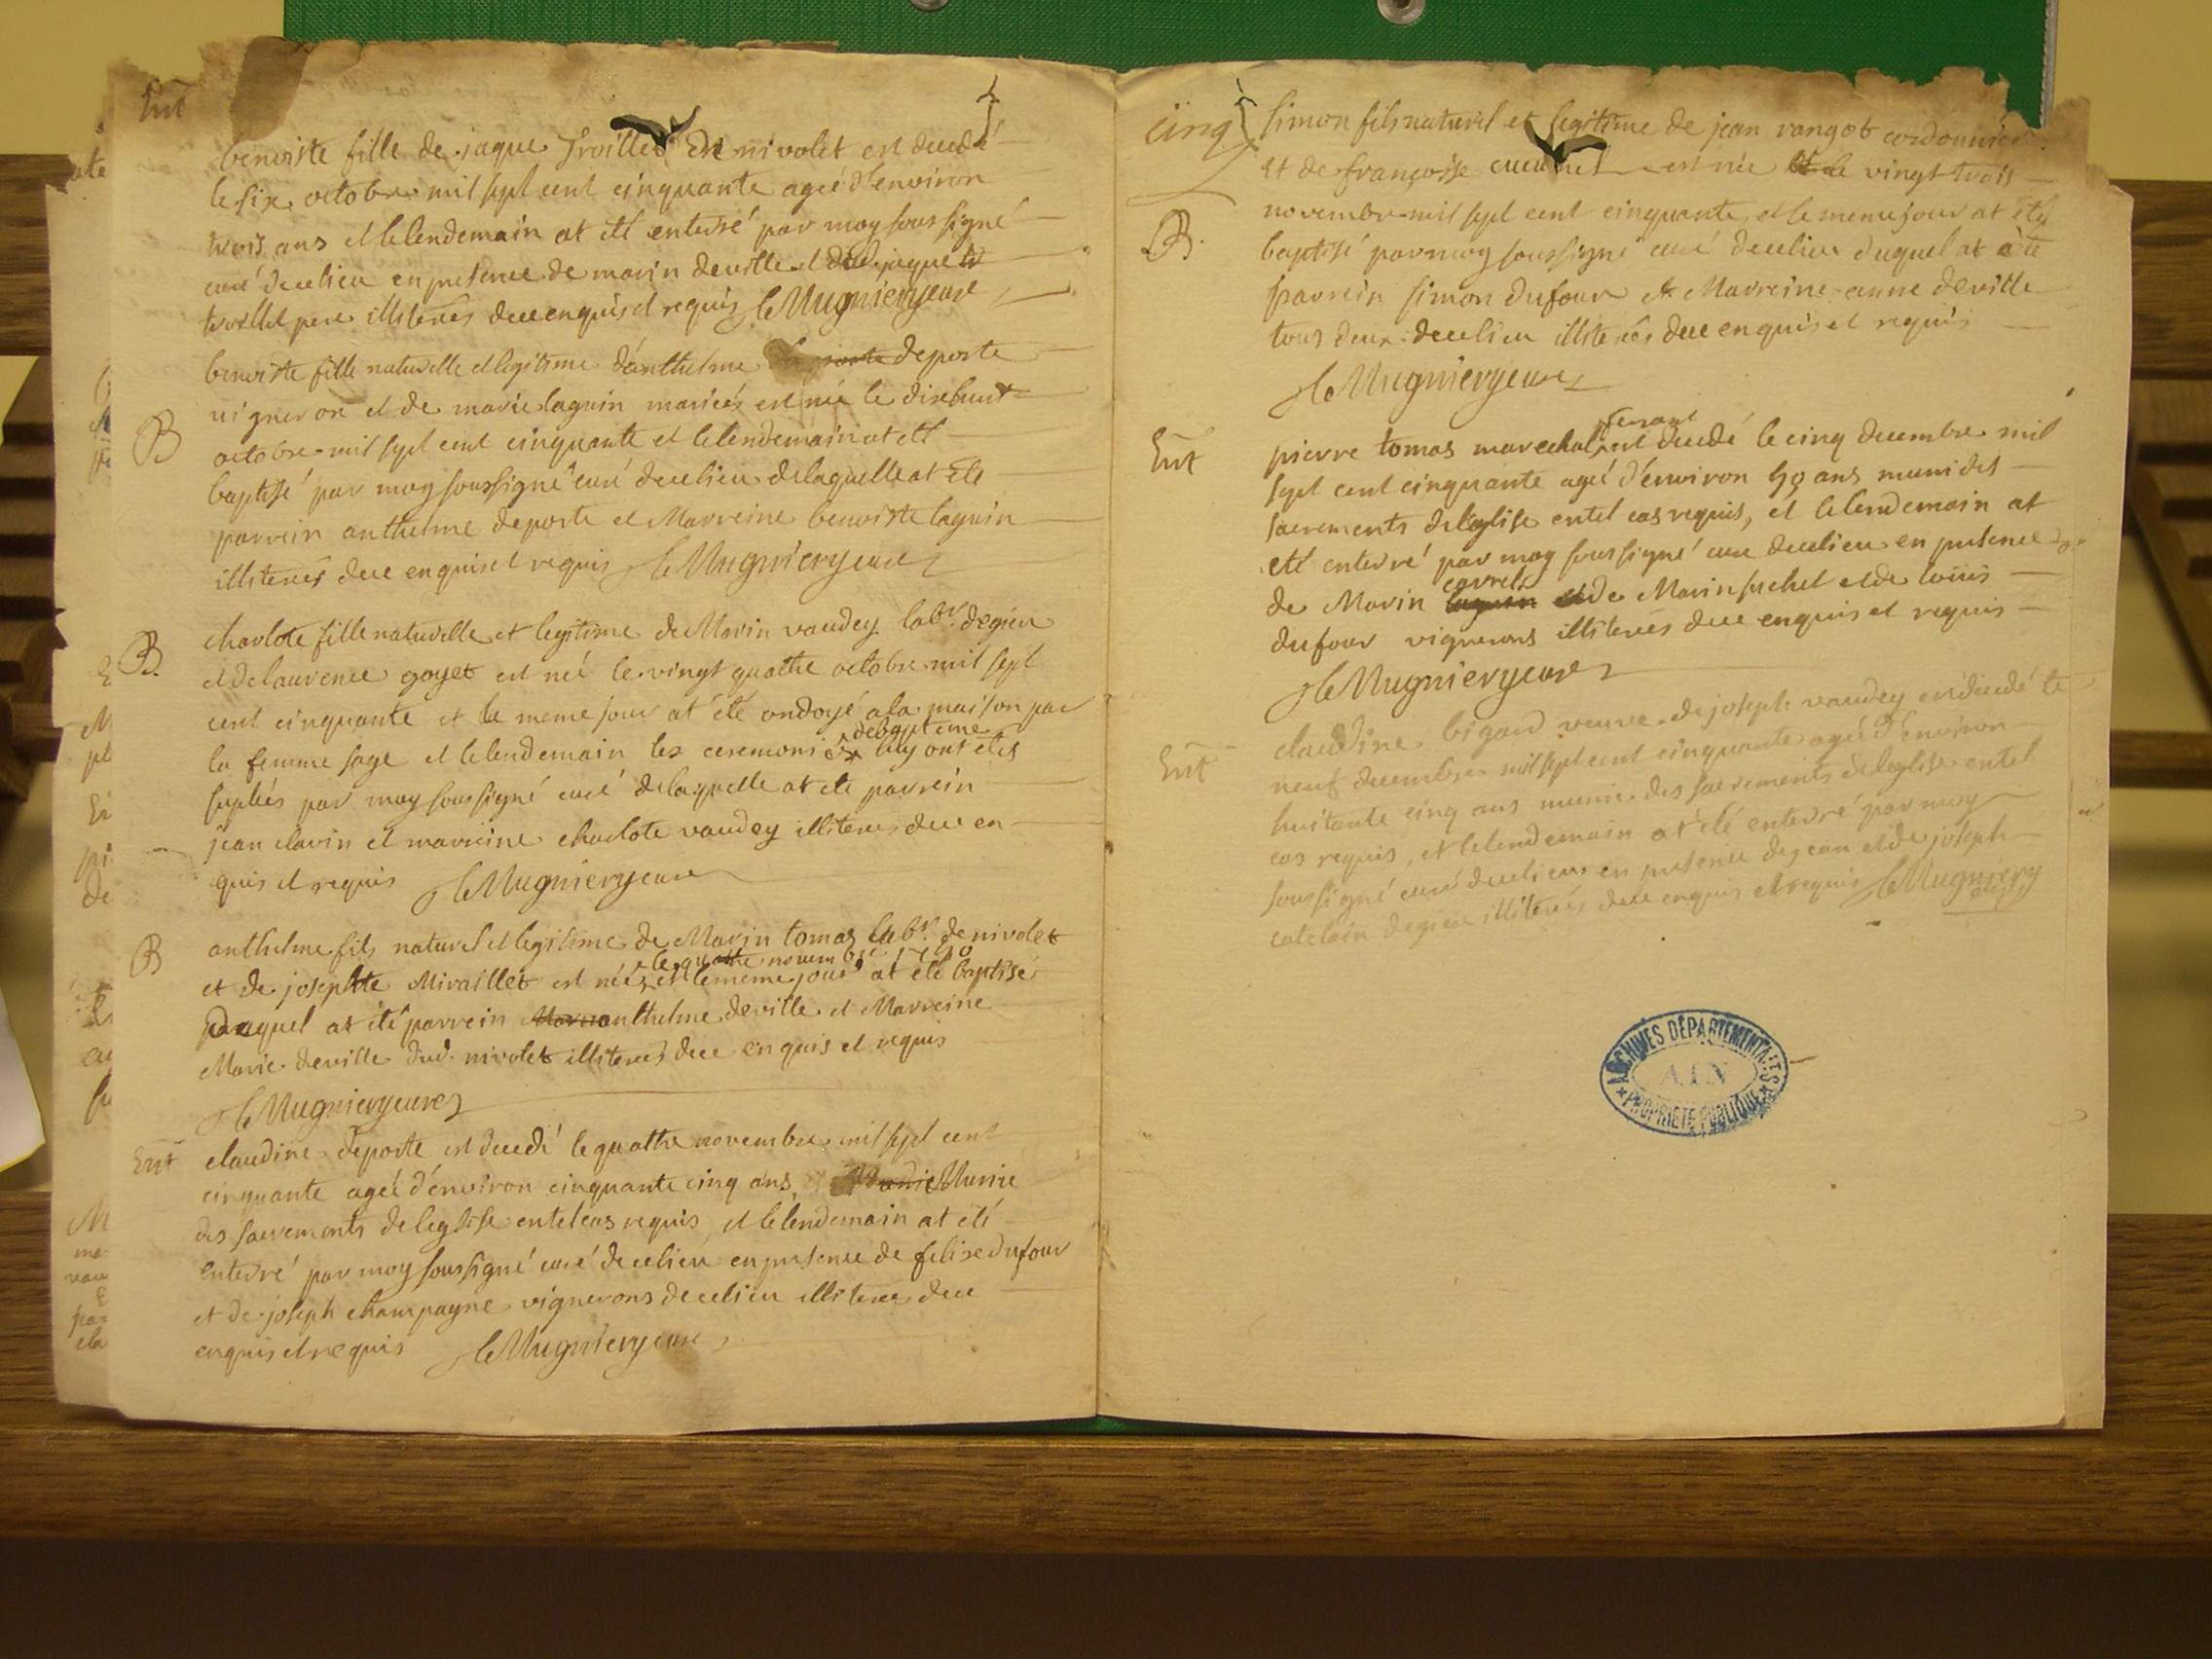 Ent
benoiste fille de jaque Troillet de nivolet est decedé
le six octobre mil sept cent cinquante ageé d'environ
trois ans et lelendemain at eté enterré par moy soussigné
curé decelieu en presence de marin deville et dud. jaque
troillet pere illiterés dece enquis et requis
Mugniery curé
benoiste fille naturelle et legitime d'anthelme deporte
B
vigneron et de marie laguin mariés est née le dixhuit
octobre mil sept cent cinquante et lelendemain at eté
baptisé par moy soussigné curé decelieu delaquelle at ete
parrein anthelme deporte et Marreine benoiste laguin
illiterés dece enquis et requis
Mugniery curé
B.
charlote fille naturelle et legitime de Marin vaudey labr. degieu
et delaurence goyet est neé le vingt quatre octobre mil sept
cent cinquante et le meme jour at été ondoyé ala maison par
la femme sage et lelendemain les ceremonies debapteme luy ont étés
supleés par moy soussigné curé delaquelle at ete parrein
jean clavin et marreine charlote vaudey illiterés dece en
quis et requis
Mugniery curé
B
anthelme fils naturel et legitime de Marin tomas labr. de nivolet
le quattre novembre 1750
et de josephte Miraillet est née, et lememe jour at eté baptisé
Duquel at été parrein anthelme deville et Marreine
Marie deville dud. nivolet illiterés dece enquis et requis
Mugniery curé
Ent
claudine deporte est decedé le quattre novembre mil sept cent
cinquante ageé d'environ cinquante cinq ans, Munie
des sacrements deleglise entel cas requis, et lelendemain at eté
enterré par moy soussigné curé decelieu en presence de felix dufour
et de joseph champagne vignerons decelieu illiteres dece
enquis et requis
Mugniery curé
cinq
simon fils naturel et legitime de jean rangot cordonnier
et de françoise est née le vingt trois
B.
novembre mil sept cent cinquante, et le meme jour at eté
baptisé par moy soussigné curé decelieu duquel at été
parrein simon dufour et Marreine anne deville
tous deux decelieu illiterés dece enquis et requis
Mugniery curé
Ent
pierre tomas marechal ferrant est decedé le cinq decembre mil
sept cent cinquante ageé d'environ 50 ans muni des
sacrements deleglise entel cas requis, et lelendemain at
eté enterré par moy soussigné curé decelieu en presence
de Marin carrel et de Marin suchet et de louis
dufour vignerons illiterés dece enquis et requis
Mugniery curé
Ent
claudine bigard veuve de joseph vaudey est decedé le
neuf decembre mil sept cent cinquante ageé d'environ
huitante cinq ans munie des sacrements deleglise entel
cas requis, et lelendemain at eté enterré par moy
soussigné curé decelieu en presence de jean et de joseph
catelain degieu illiterés dece enquis et requis
Mugniery
curé
ARCHIVES DÉPARTEMENTALES
AIN
PROPRIÉTÉ PUBLIQUE